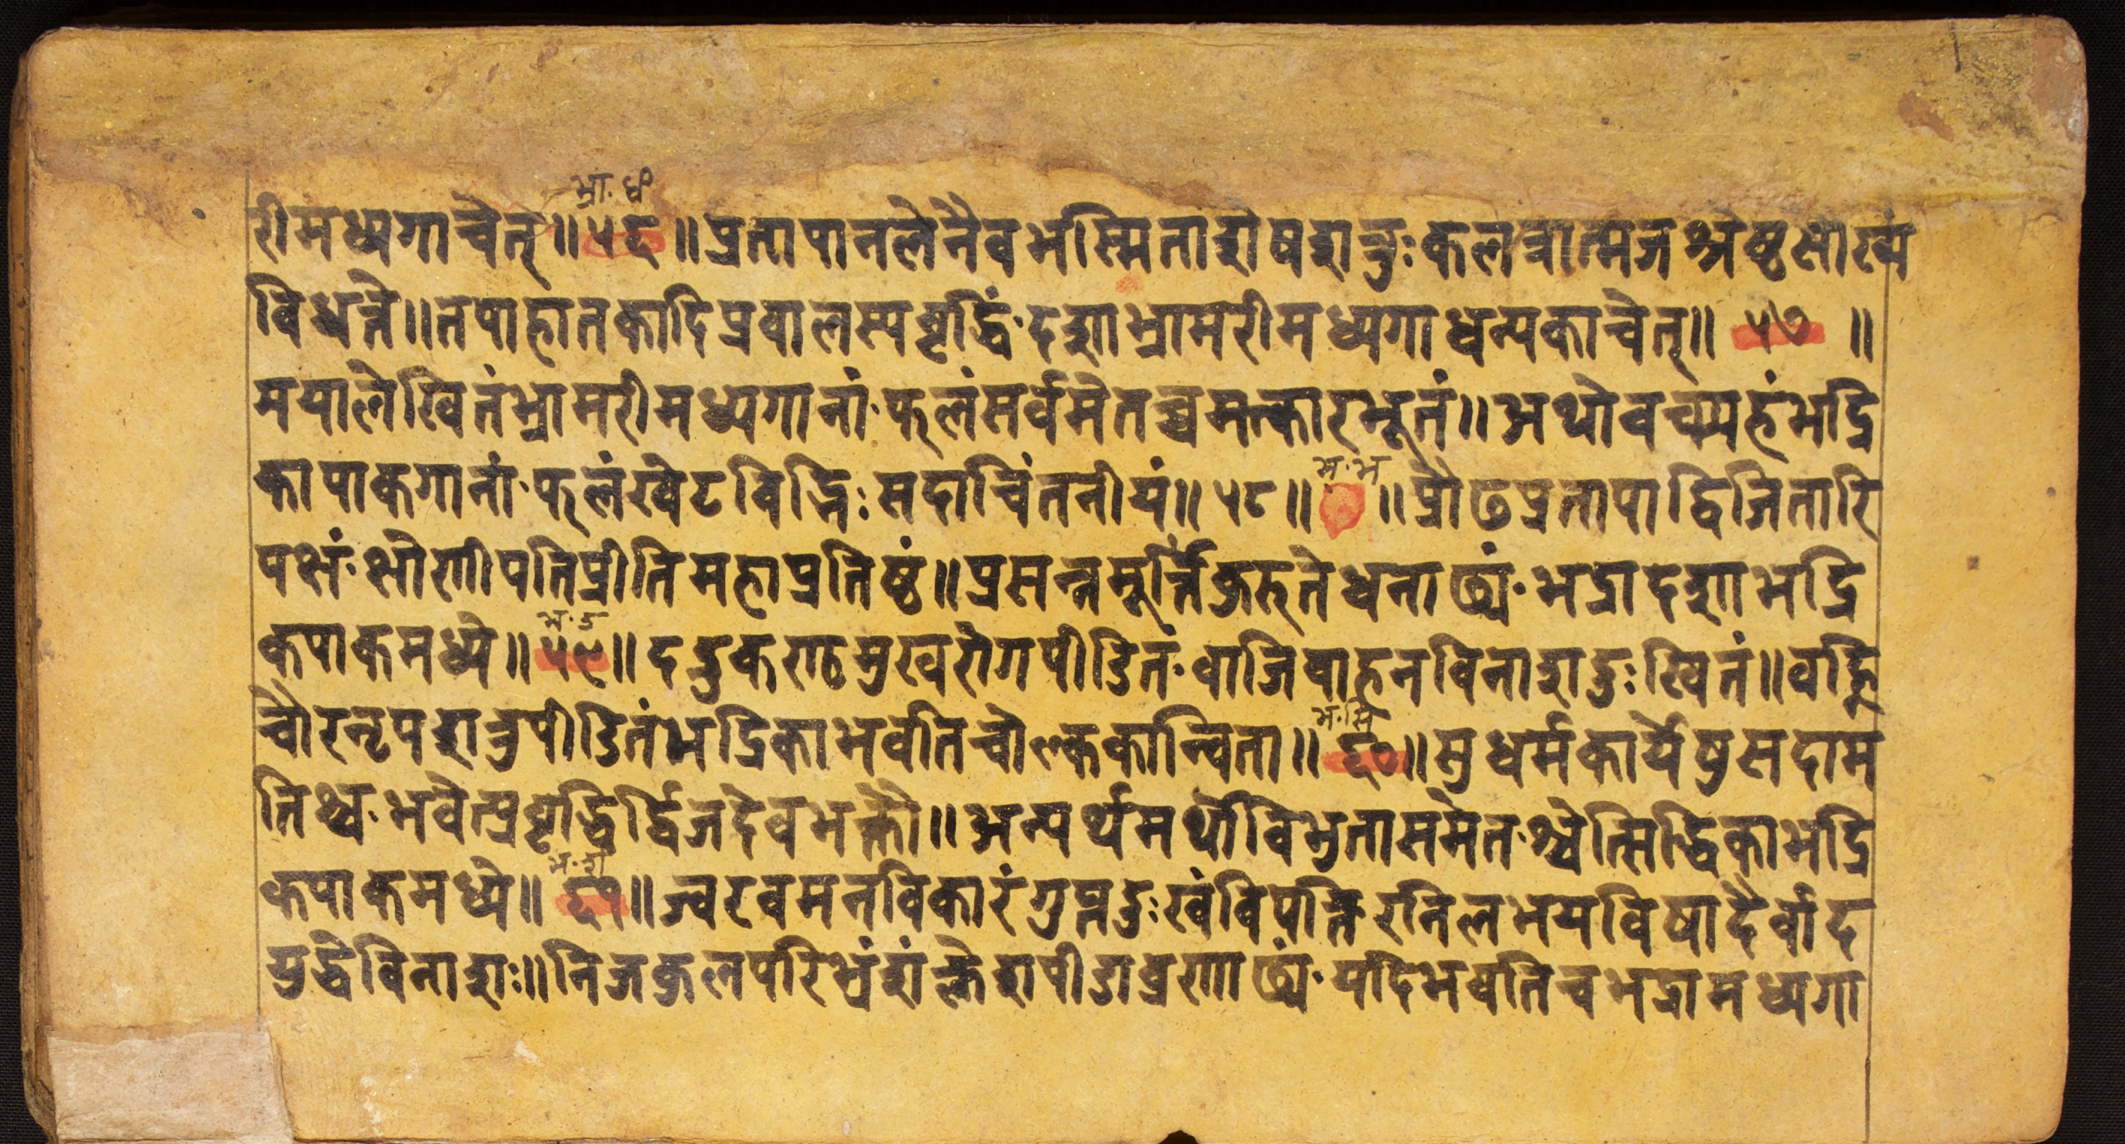 भ्रा. ध
रीमध्यगाचेत् ॥ ५६ ॥ प्रतापानलेनैव भस्मिताशेषशत्रुः कलत्रात्मजश्रेष्ठसौख्यं
विधत्ते ॥ तपाहातकादिप्रवालस्यवृद्धिं. दशाभ्रामरीमध्यगाधन्यकाचेत् ॥ ५७ ॥
मयालेखितंभ्रामरीमध्यगानां. फलंसर्वमेतच्चमत्कारभूतं ॥ अथोवच्म्यहंभद्रि
कापाकगानां. फलंखेटविद्भिः सदाचिंतनीयं ॥ ५८ ॥ भ. भ ॥ प्रौढप्रतापाद्विजितारि
पक्षं. क्षोणीपतिप्रीतिमहाप्रतिष्ठं ॥ प्रसन्नमूर्त्तिंकुरुतेधनाढ्यं. भद्रादशाभद्रि
भ. उ
कपाकमध्ये ॥ ५९ ॥ दद्रुकण्ठमुखरोगपीडितं. वाजिवाहनविनाशदुःखितं ॥ वह्नि
चौरनृपशत्रुपीडितंभद्रिकाभवतिचोल्ककान्विता ॥ भ. सि ६० ॥ सुधर्मकार्येषुसदाम
तिश्च. भवेत्प्रवृद्धिर्द्विजदेवभक्तौ ॥ अन्यर्थमर्थोविभुतासमेत. श्चेत्सिद्धिकाभद्रि
भ. श
कपाकमध्ये ॥ ६१ ॥ ज्वरवमनविकारंगुप्तदुःखंविपत्ति रनिलभयविषादैर्वाद
युद्धेविनाशः ॥ निजकुलपरिभ्रंशंक्लेशपीडाव्रणाढ्यं. यदिभवतिचभद्रामध्यगा